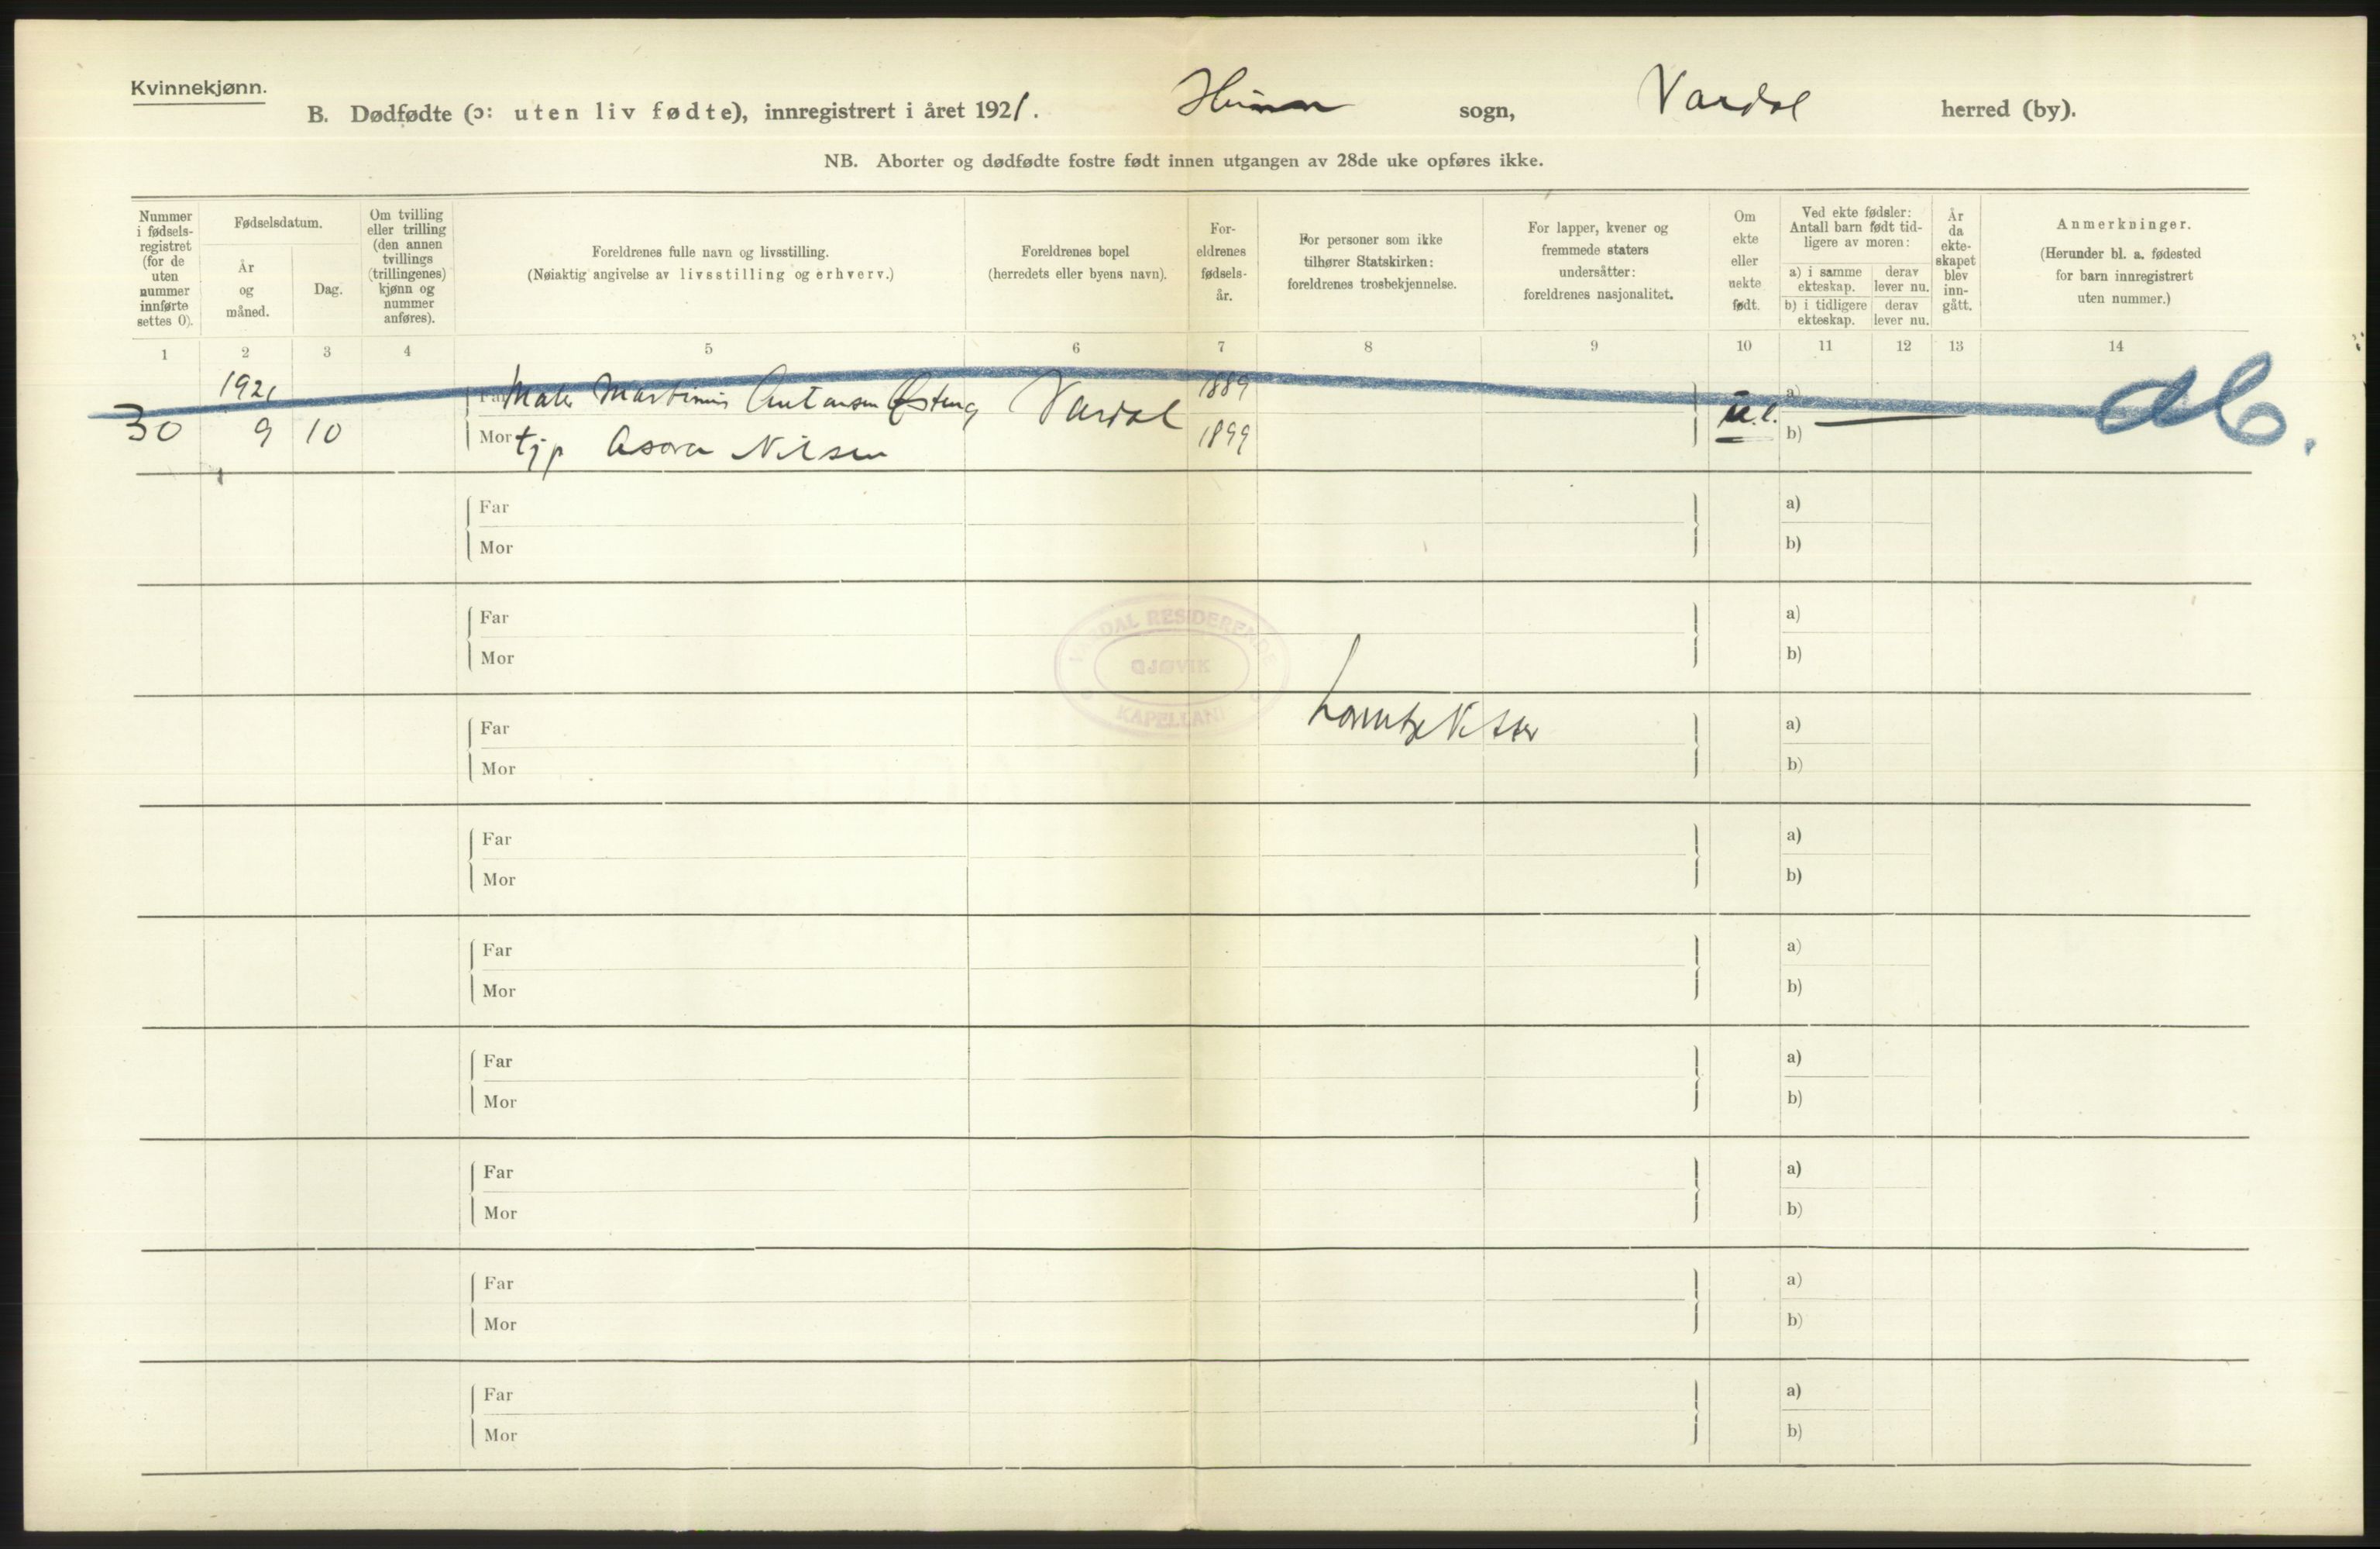 Kvinnekjønn.
B. Dødfødte (ɔ: uten liv fødte), innregistrert i året 1921. Hunn sogn, Vardal herred (by).
NB. Aborter og dødfødte fostre født innen utgangen av 28de uke opføres ikke.
Nummer i fødsels-registret (for de uten nummer innførte settes 0).
Fødselsdatum.
År og måned.
Dag.
Om tvilling eller trilling (den annen tvillings (trillingenes) kjønn og nummer anføres).
Foreldrenes fulle navn og livsstilling.
(Nøiaktig angivelse av livsstilling og erhverv.)
Foreldrenes bopel
(herredets eller byens navn).
For-eldrenes fødsels-år.
For personer som ikke tilhører Statskirken: foreldrenes trosbekjennelse.
For lapper, kvener og fremmede staters undersåtter: foreldrenes nasjonalitet.
Om ekte eller uekte født.
Ved ekte fødsler: Antall barn født tid-ligere av moren:
a) i samme ekteskap.
derav lever nu.
b) i tidligere ekteskap.
derav lever nu.
År da ekte-skapet blev inn-gått.
Anmerkninger.
(Herunder bl. a. fødested for barn innregistrert uten nummer.)
1 2 3 4 5 6 7 8 9 10 11 12 13 14
1921
Far Maler Martinius Antonsen Østeng Vardal 1889 a)
30 9 10 Mor tjp Asora Nilsen 1899 u.e. b)
Far a)
Mor b)
VARDAL RESIDERENDE
GJØVIK
KAPELLANI
Far a)
Mor b)
Far a)
Mor b)
Far a)
Mor b)
Far a)
Mor b)
Far a)
Mor b)
Far a)
Mor b)
Far a)
Mor b)
Far a)
Mor b)